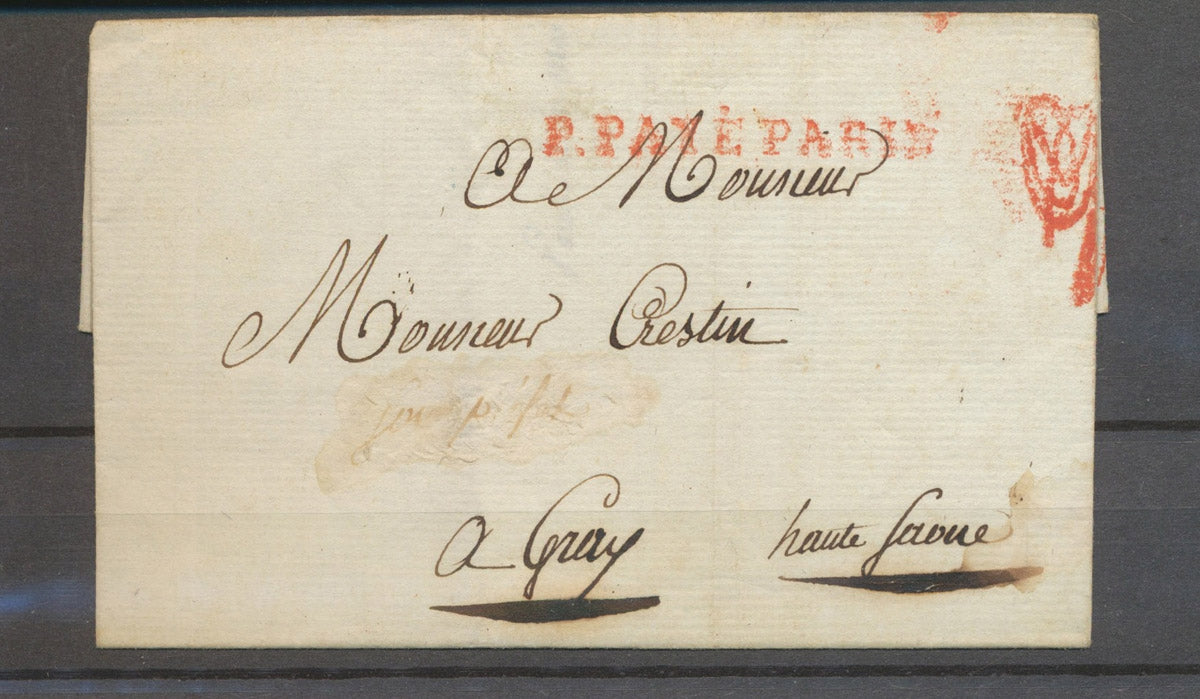 P.PAYÉ PARIS
A Monsieur
Monsieur Crestin
a Gray haute Saone